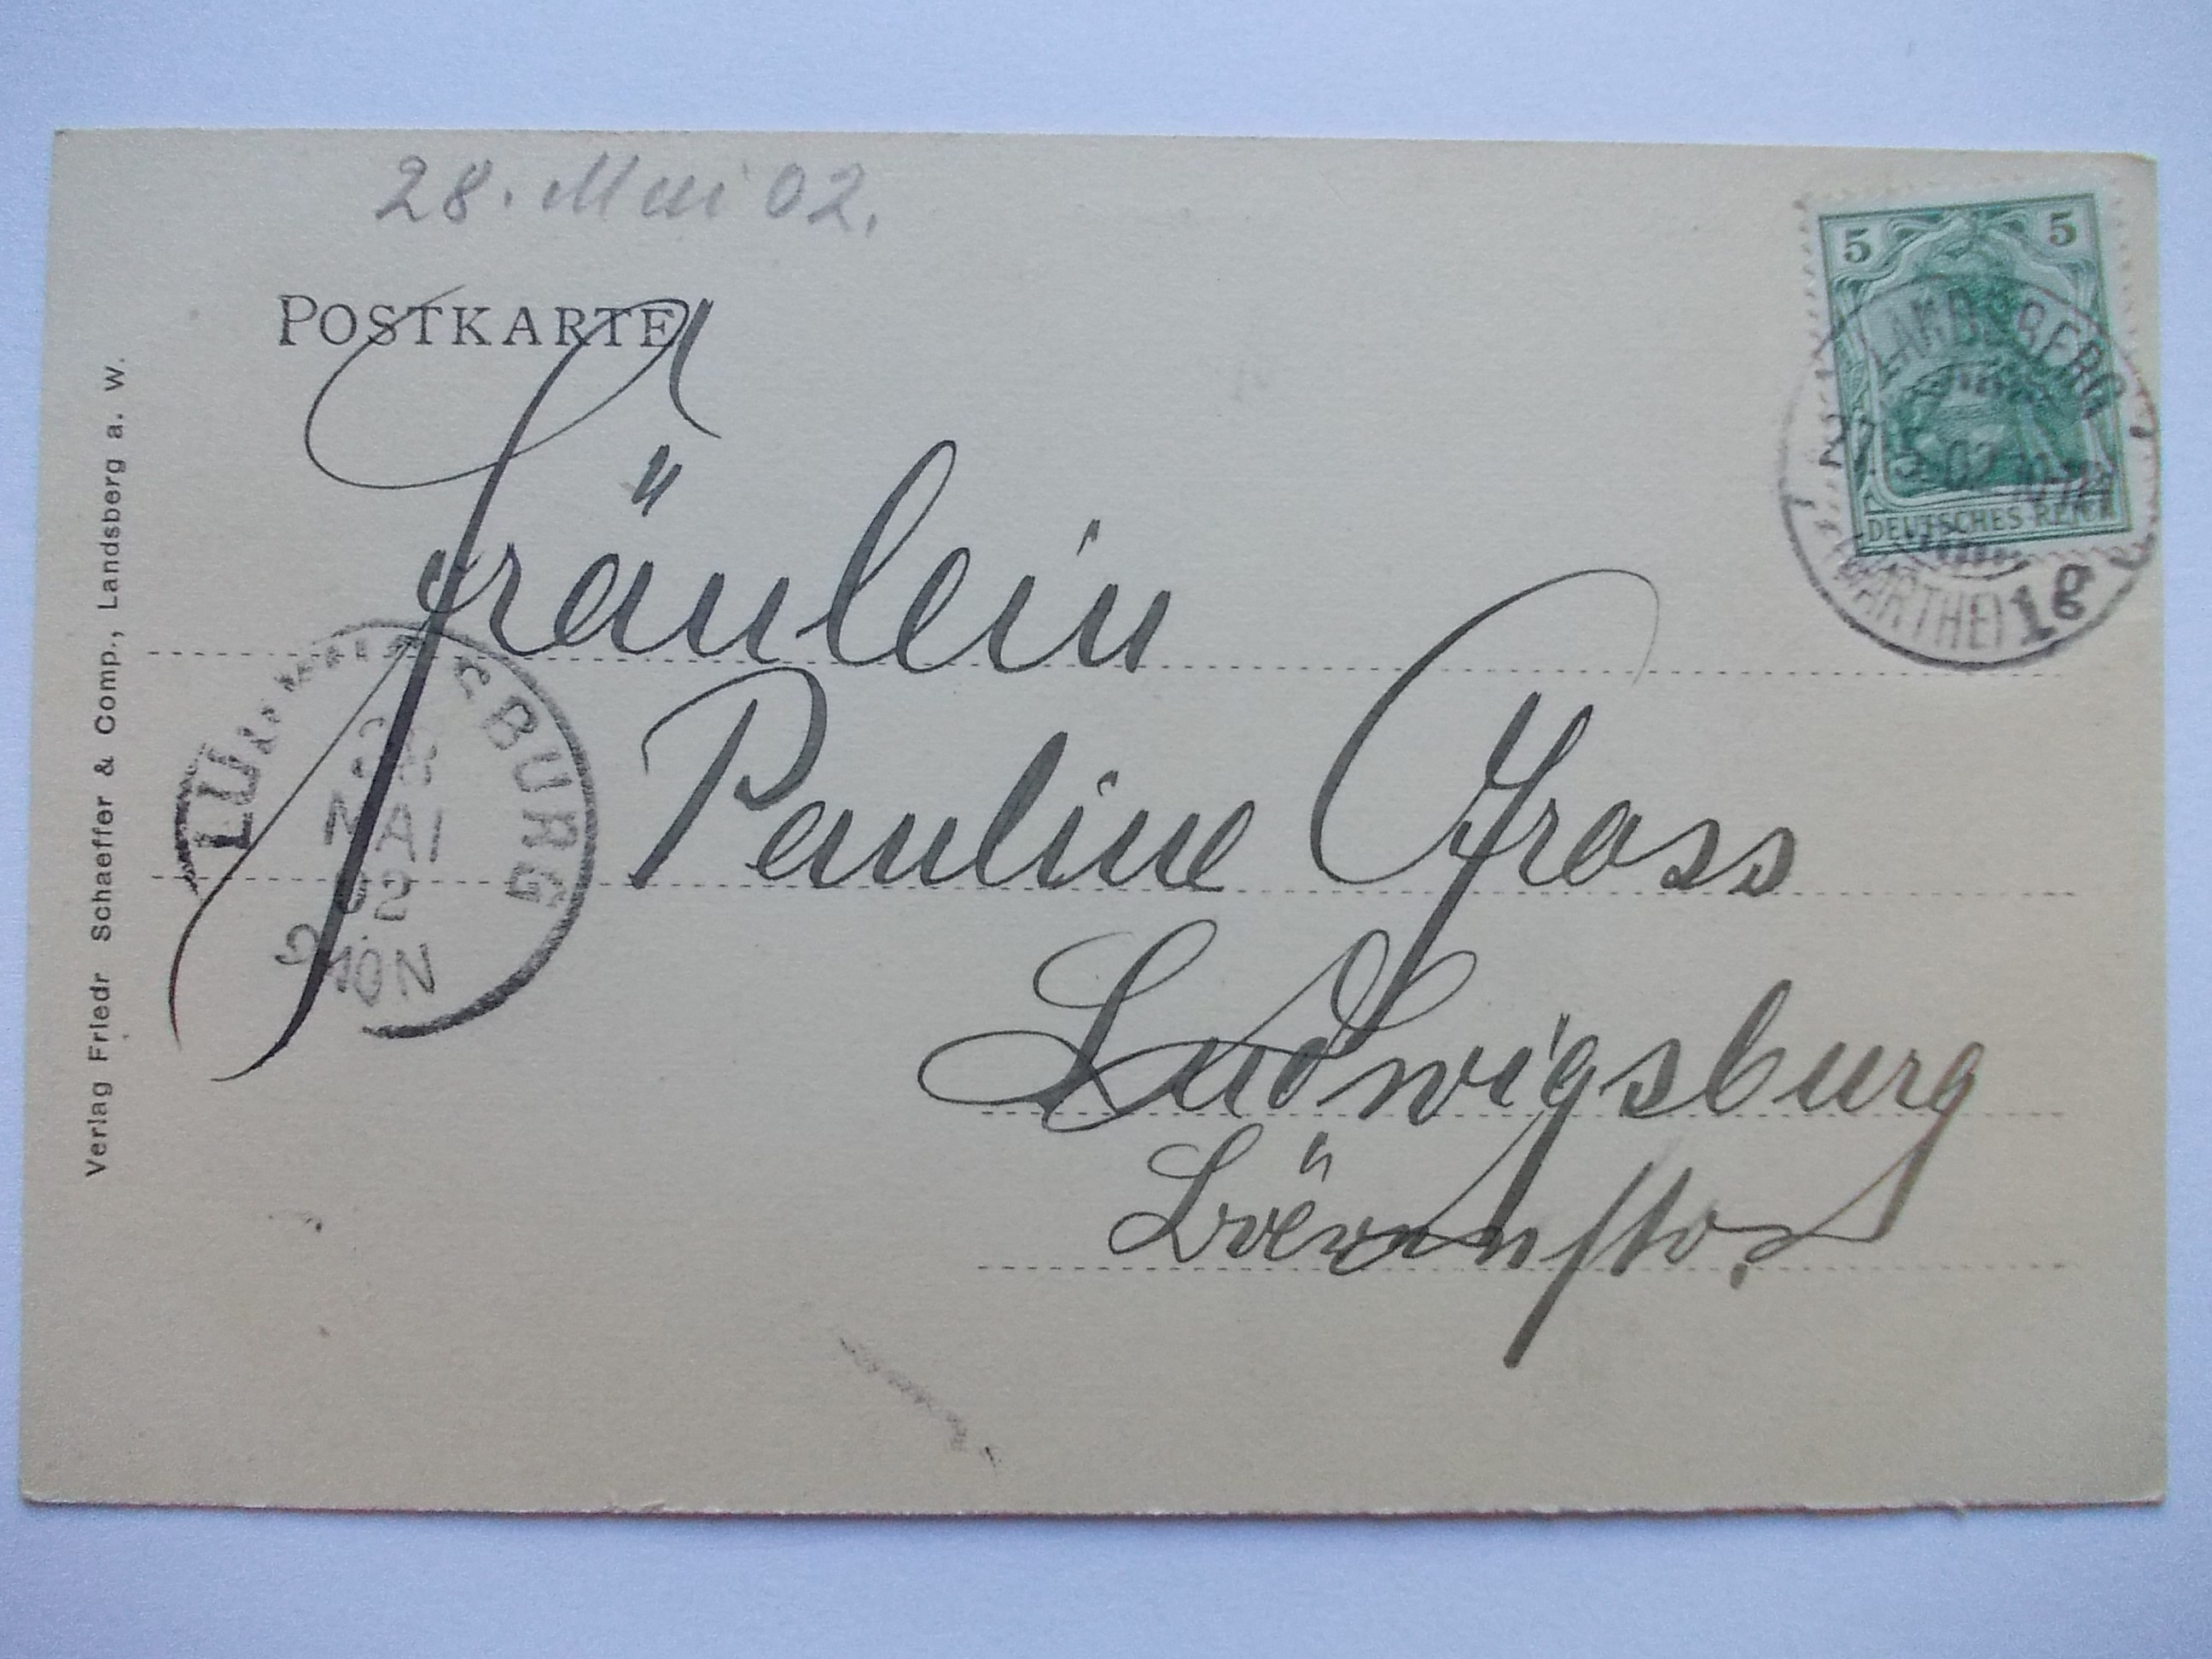 28. Mai 02.
POSTKARTE
5 5
LANDSBERG
02
DEUTSCHES REICH
(WARTHE) 1g
Fräulein
Pauline Gross
Ludwigsburg
LUDWIGSBURG
28
MAI
02
9-10N
Verlag Friedr Schaeffer & Comp., Landsberg a. W.